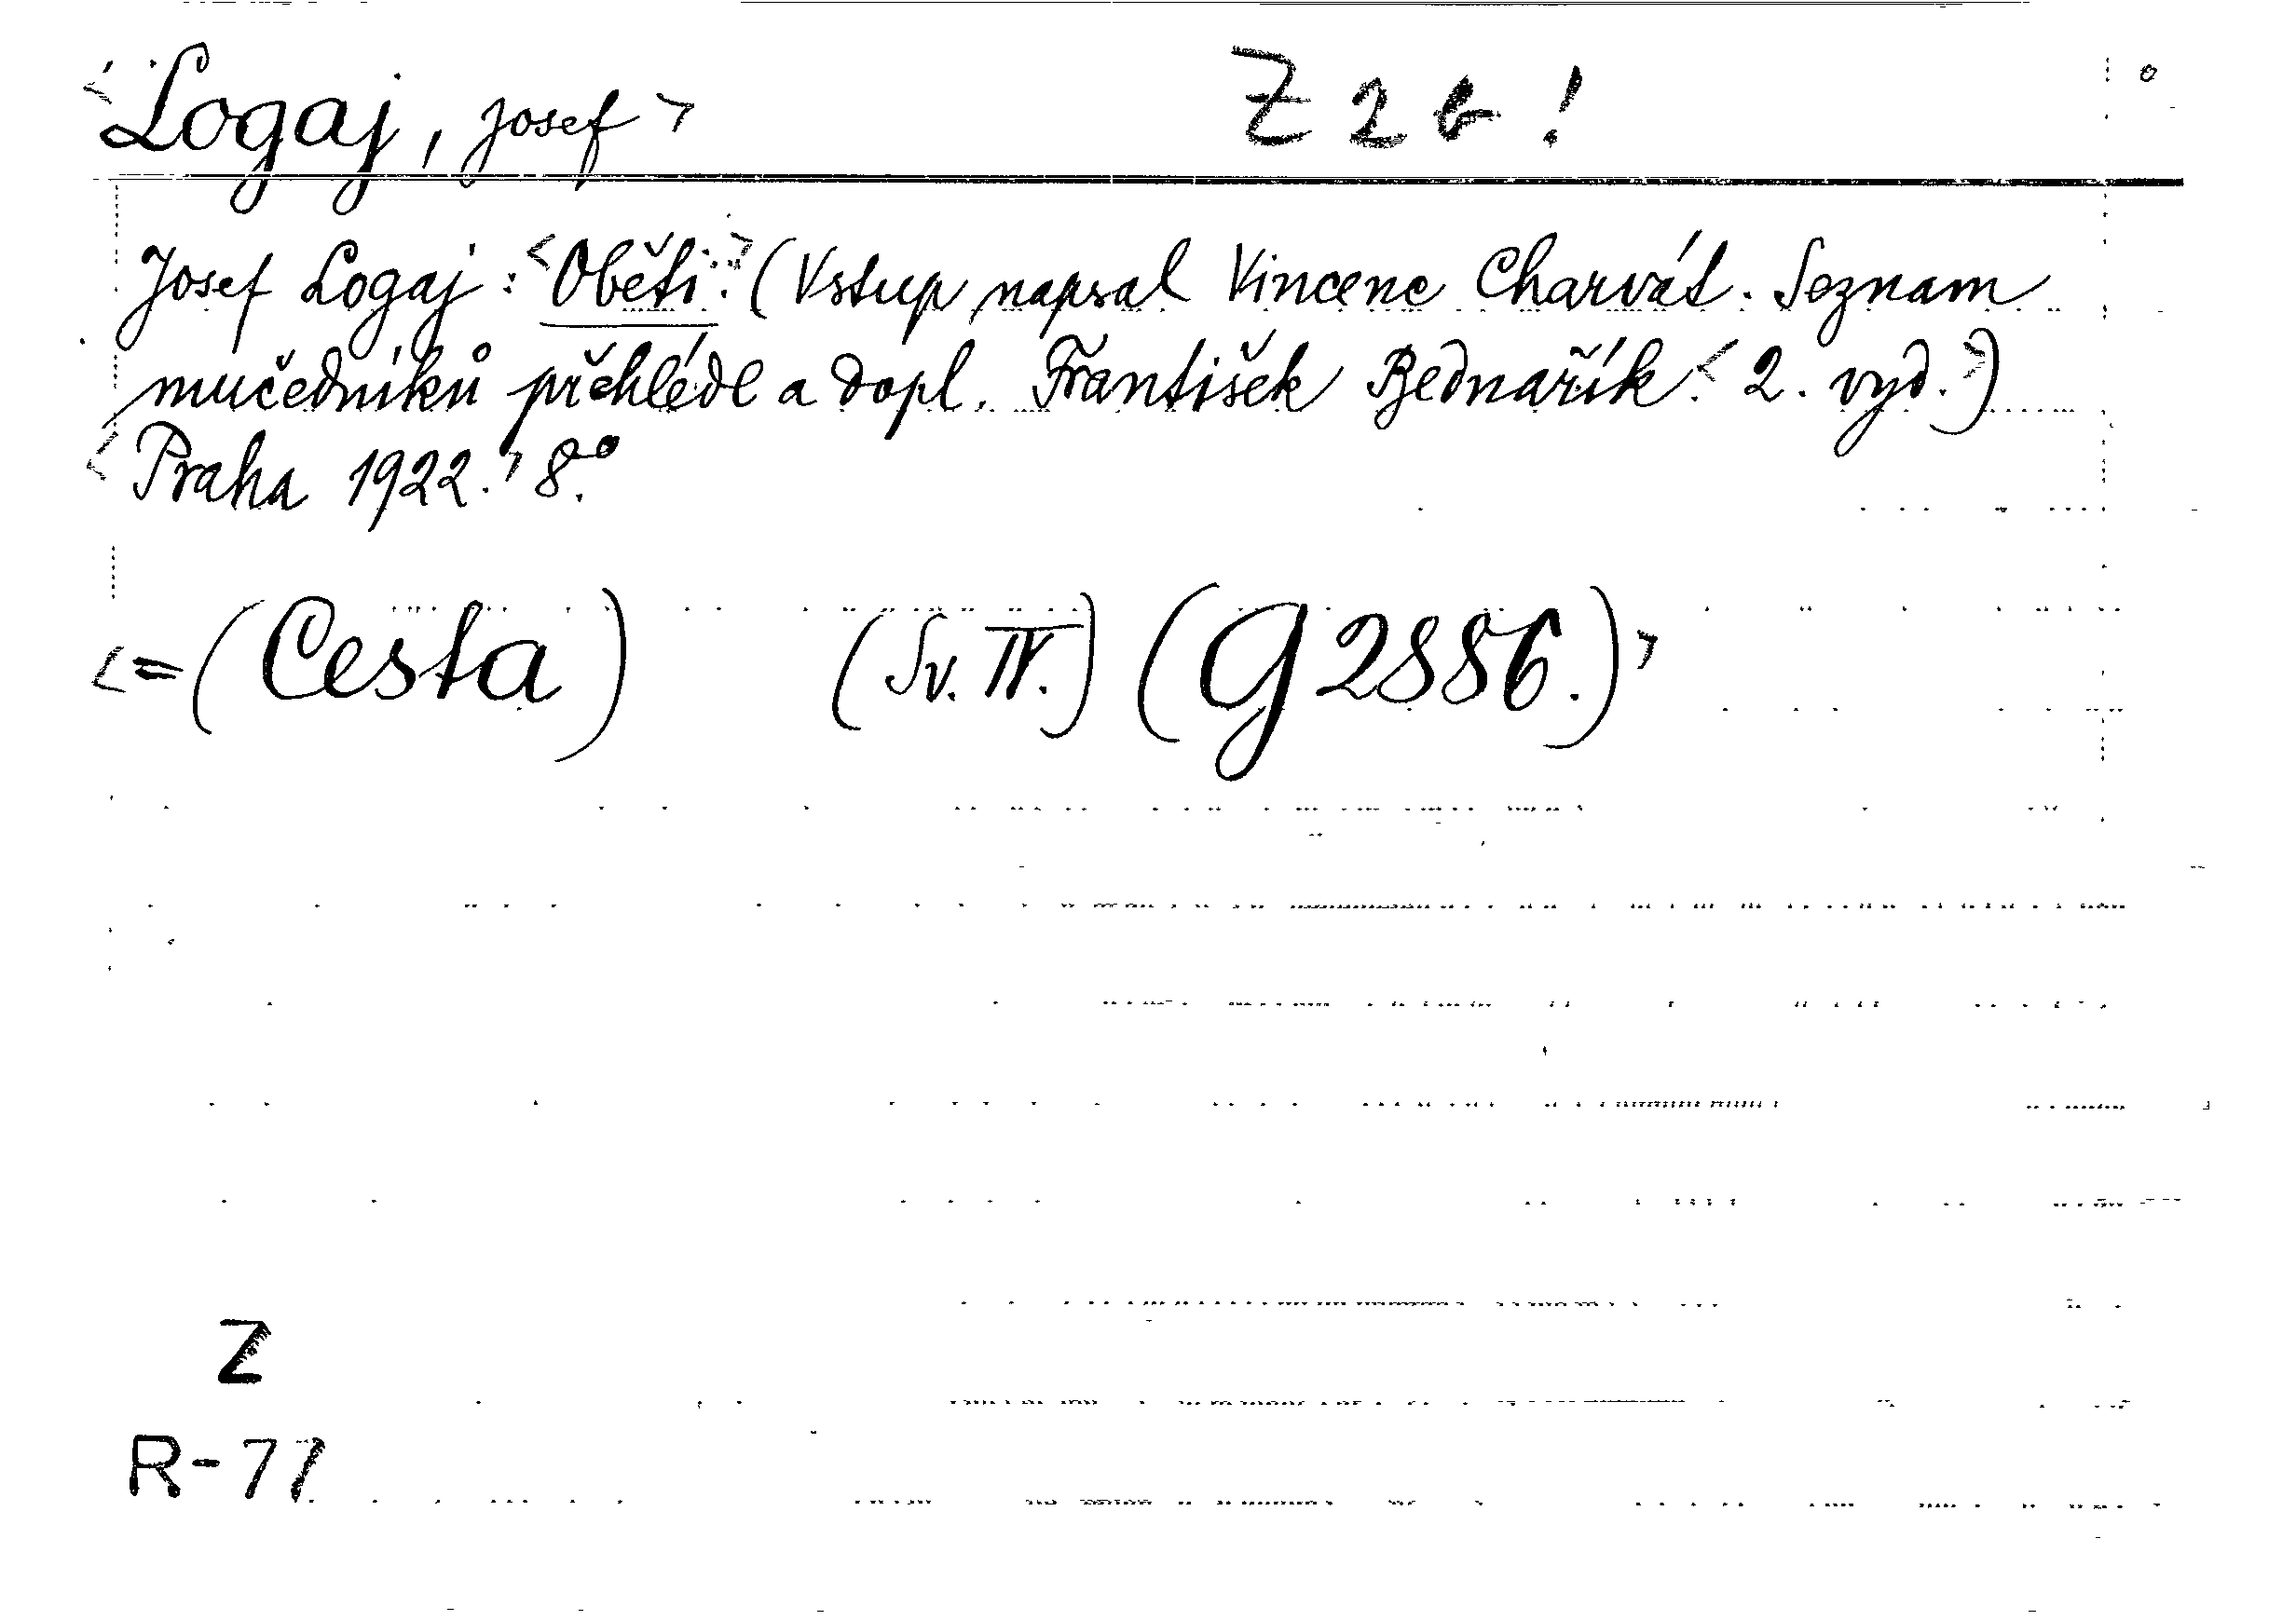 <Logaj, Josef> Z 2 b !
Josef Logaj: <Oběti.> (Vstup napsal Vincenc Charvát. Seznam
mučedníků přehlédl a dopl. František Bednařík. <2. vyd.>)
<Praha 1922.> 8°.
<=(Cesta) (Sv. IV.) (G 2886.)>
Z
R-77